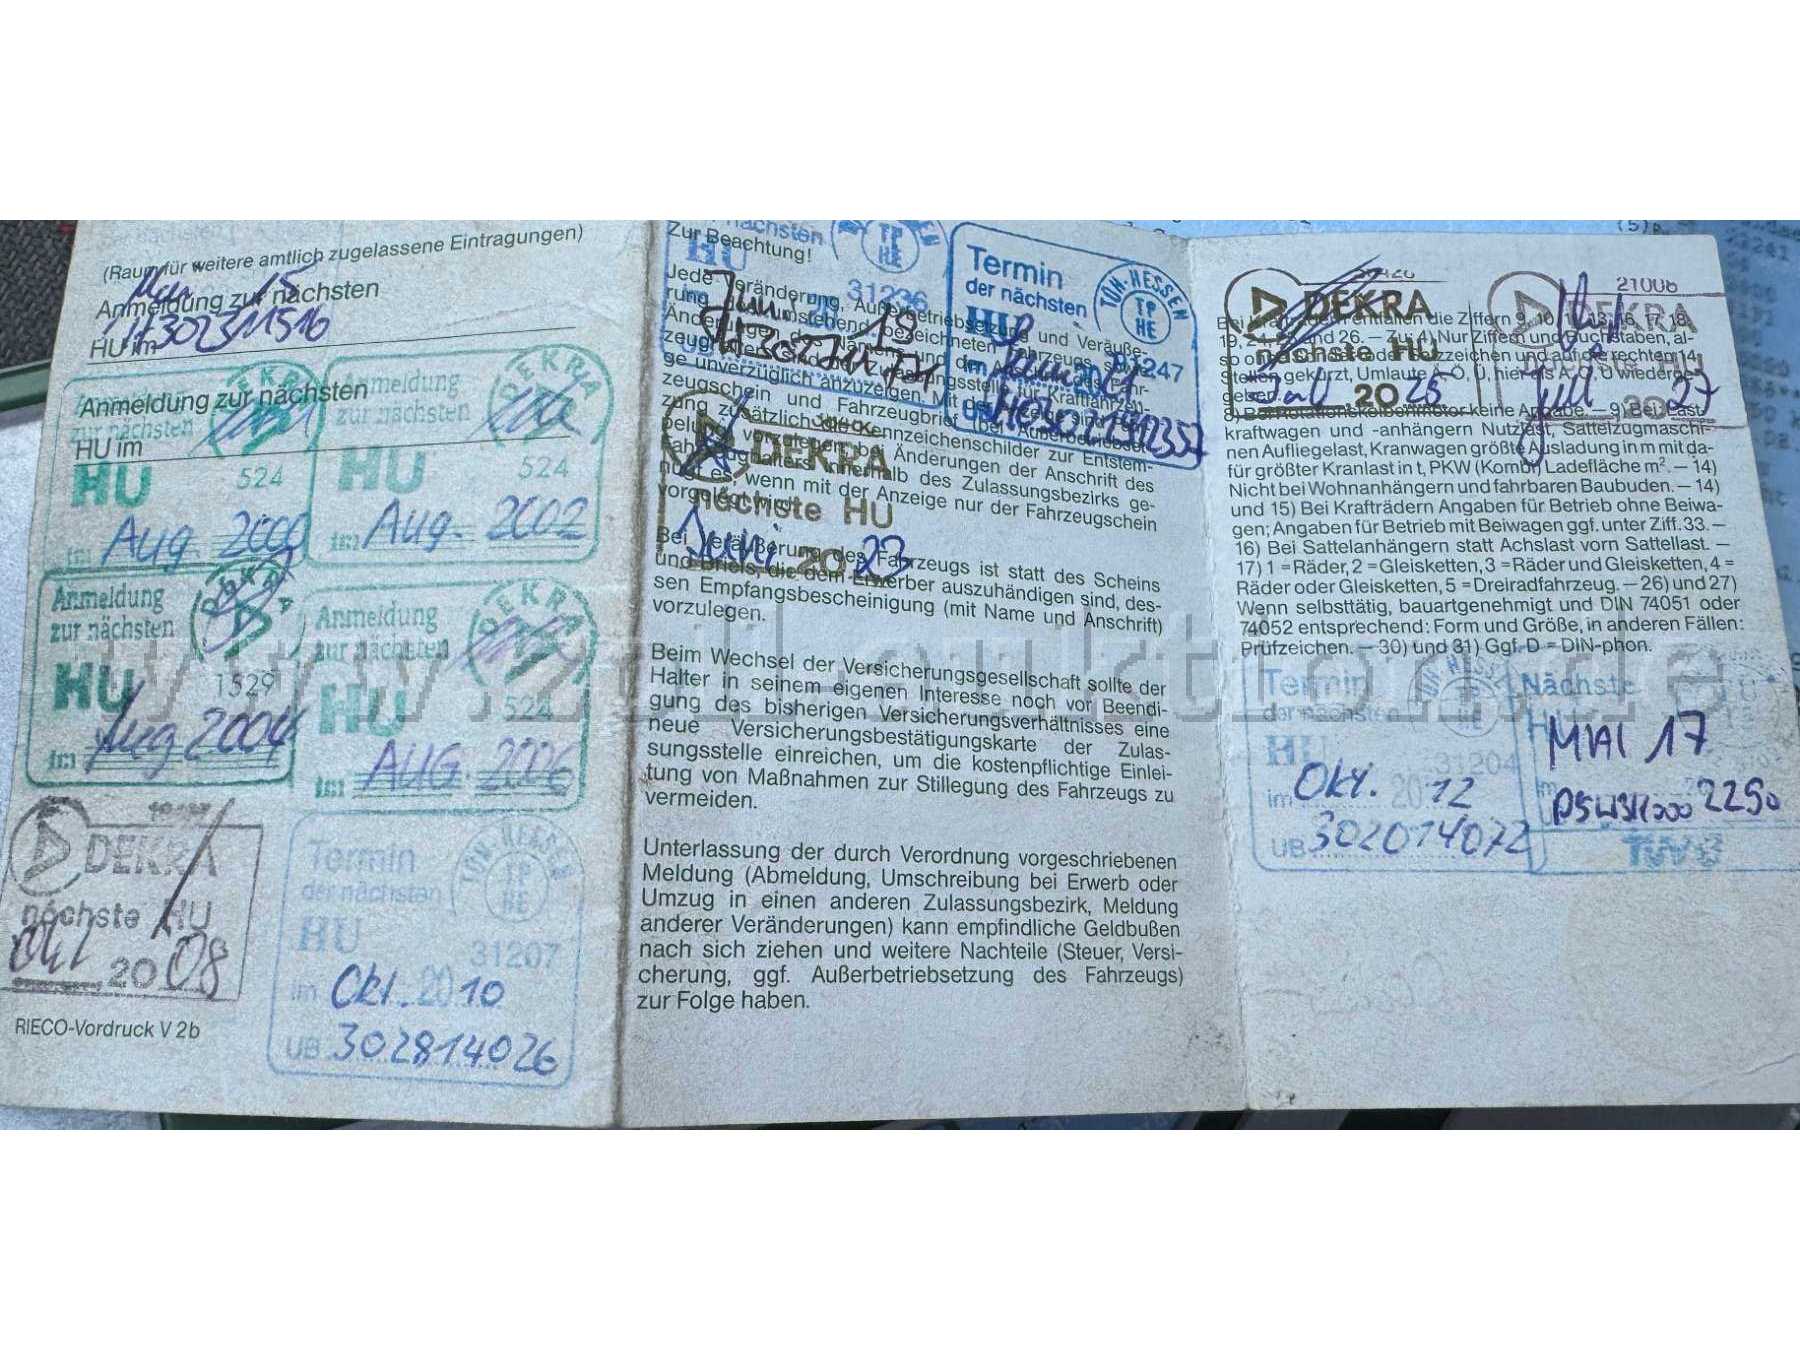 (Raum für weitere amtlich zugelassene Eintragungen)
15
Anmeldung zur nächsten
H302311516
HU im
Anmeldung zur nächsten
HU im
Anmeldung
zur nächsten
DEKRA
HU
524
im Aug. 2000
Anmeldung
zur nächsten
DEKRA
HU
524
im Aug. 2002
Anmeldung
zur nächsten
DEKRA
HU
1529
im Aug 2004
Anmeldung
zur nächsten
DEKRA
HU
524
im AUG. 2006
DEKRA
nächste HU
Okt 2008
Termin
der nächsten
TÜH-HESSEN
TP
HE
HU
31207
im Okt. 2010
UB 302814026
RIECO-Vordruck V 2b
nächsten
HU
TP
HE
31236
Zur Beachtung!
Jede Veränderung, Außerbetriebsetzung und Veräuße-
rung des umstehend bezeichneten Fahrzeugs sowie
Änderungen des Namens und der
zeughalters sind der Zulassungsstelle für Kraftfahrzeu-
ge unverzüglich anzuzeigen. Mit der
zeugschein und Fahrzeugbrief (bei Außerbetriebset-
zung zusätzlich die Kennzeichenschilder zur Entstem-
pelung) vorzulegen; bei Änderungen der Anschrift des
Fahrzeughalters innerhalb des Zulassungsbezirks ge-
nügt es, wenn mit der Anzeige nur der Fahrzeugschein
vorgelegt wird.
Juni 19
Termin
der nächsten
TÜH-HESSEN
TP
HE
HU
31247
21
DEKRA
nächste HU
Juni 2023
Bei Veräußerung des Fahrzeugs ist statt des Scheins
und Briefs, die dem Erwerber auszuhändigen sind, des-
sen Empfangsbescheinigung (mit Name und Anschrift)
vorzulegen.
Beim Wechsel der Versicherungsgesellschaft sollte der
Halter in seinem eigenen Interesse noch vor Beendi-
gung des bisherigen Versicherungsverhältnisses eine
neue Versicherungsbestätigungskarte der Zulas-
sungsstelle einreichen, um die kostenpflichtige Einlei-
tung von Maßnahmen zur Stillegung des Fahrzeugs zu
vermeiden.
Unterlassung der durch Verordnung vorgeschriebenen
Meldung (Abmeldung, Umschreibung bei Erwerb oder
Umzug in einen anderen Zulassungsbezirk, Meldung
anderer Veränderungen) kann empfindliche Geldbußen
nach sich ziehen und weitere Nachteile (Steuer, Versi-
cherung, ggf. Außerbetriebsetzung des Fahrzeugs)
zur Folge haben.
DEKRA
nächste HU
Juli 2025
21006
DEKRA
Juli 2027
19, 24, 25 und 26. – Zu 4) Nur Ziffern und Buchstaben, al-
so ohne und auf die rechten 14
Stellen gekürzt, Umlaute Ä, Ö, Ü, hier als A, O, U wiederge-
geben.
8) Bei Rotationskolbenmotor keine Angabe. – 9) Bei Last-
kraftwagen und -anhängern Nutzlast, Sattelzugmaschi-
nen Aufliegelast, Kranwagen größte Ausladung in m mit da-
für größter Kranlast in t, PKW (Kombi) Ladefläche m². – 14)
Nicht bei Wohnanhängern und fahrbaren Baubuden. – 14)
und 15) Bei Krafträdern Angaben für Betrieb ohne Beiwa-
gen; Angaben für Betrieb mit Beiwagen ggf. unter Ziff. 33. –
16) Bei Sattelanhängern statt Achslast vorn Sattellast. –
17) 1 = Räder, 2 = Gleisketten, 3 = Räder und Gleisketten, 4 =
Räder oder Gleisketten, 5 = Dreiradfahrzeug. – 26) und 27)
Wenn selbsttätig, bauartgenehmigt und DIN 74051 oder
74052 entsprechend: Form und Größe, in anderen Fällen:
Prüfzeichen. – 30) und 31) Ggf. D = DIN-phon.
Termin
der nächsten
TÜH-HESSEN
TP
HE
HU
31204
im Okt. 2012
UB 302014072
Nächste
HU
MAI 17
2250
www.zoll-auktion.de